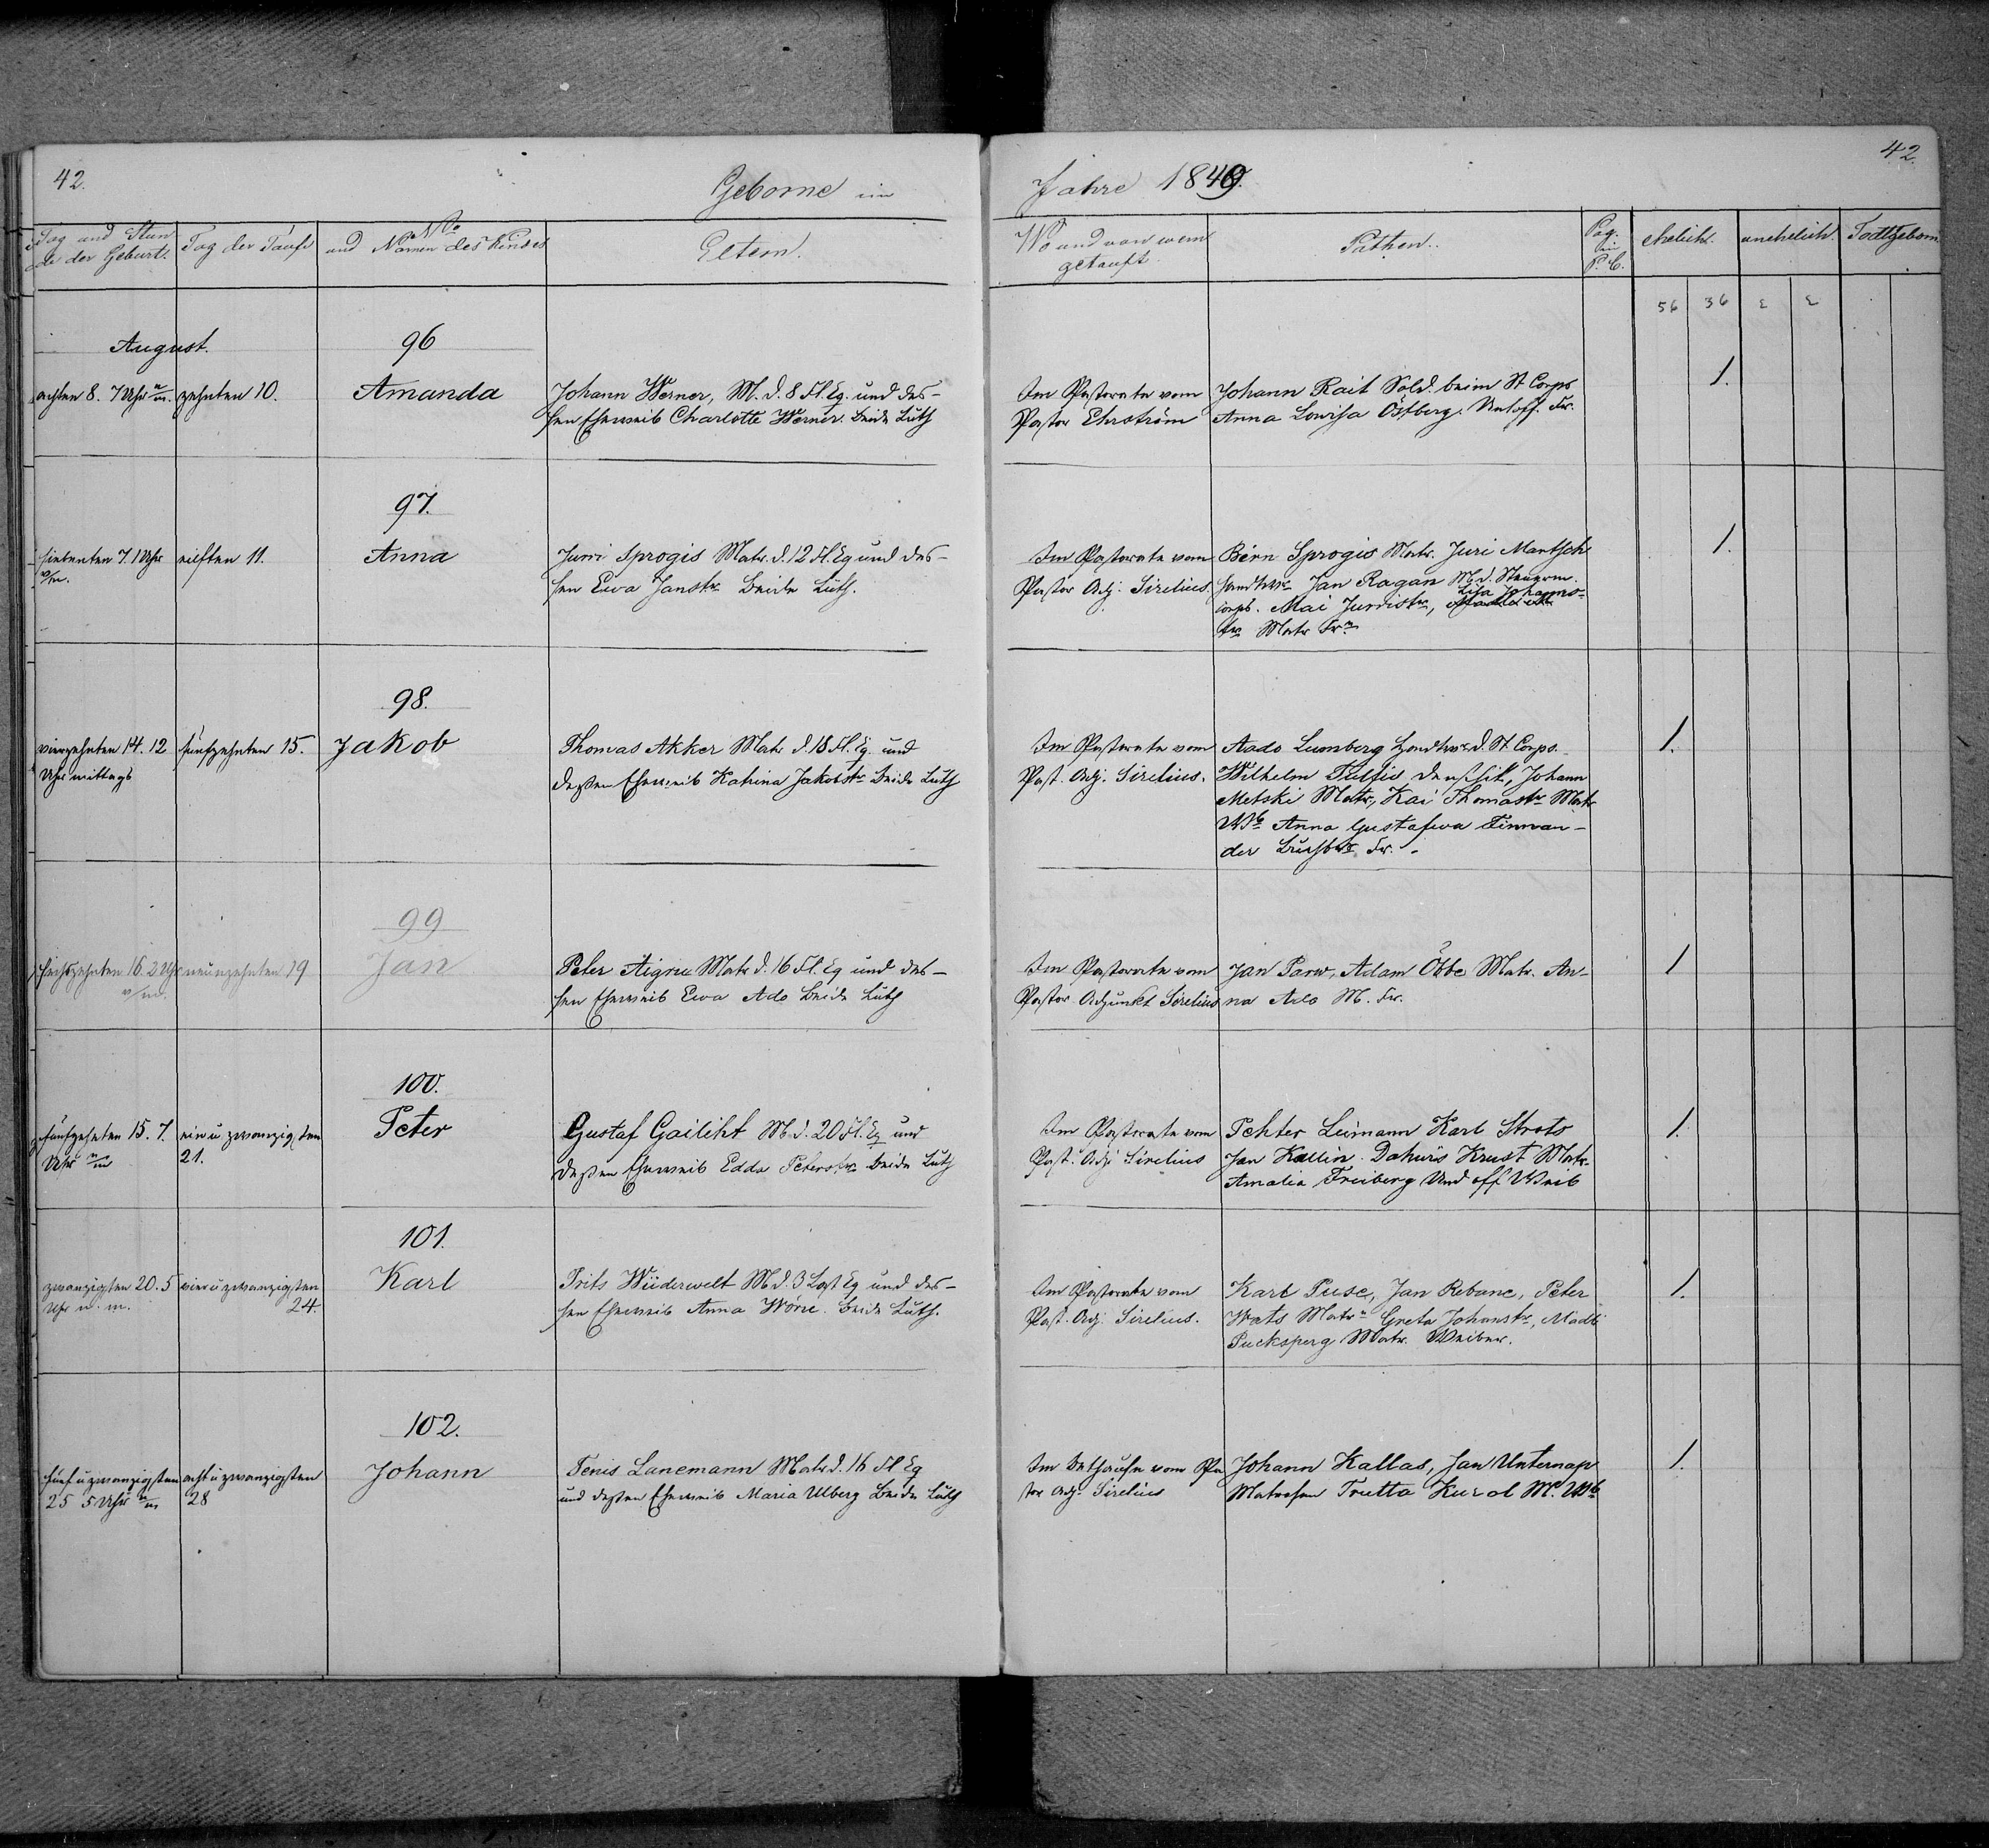 42.
Geborne im
Jahre 1849.
42.
Tag und Stun
de der Geburt.
Tag der Taufe
No
und Namen des Kindes
Eltern.
Wo und von wem
getauft
Pathen.
Pag.
im
P. B.
ehelich.
unehelich.
Todtgeborn
56 36
August.
96
achten 8. 7 Uhr n/m. zehnten 10.
Amanda
Johann Werner, M. d. 8 Fl. Eq. und des-
sen Eheweib Charlotte Werner. beide Luth
Im Pastorate vom
Pastor Ehrström
Johann Rait Sold. beim St Corps
Anna Lowisa Östberg. Untoff. Fr.
1.
97.
siebenten 7. 1 Uhr
v/m.
eilften 11.
Anna
Jurri Sprogis Matr. d. 12 Fl. Eq und des-
sen Ewa Janstr beide Luth.
Im Pastorate vom
Pastor Adj. Sirelius.
Bérn Sprogis Matr. Juri Mantsch
Jan Ragan M. d. Steuerm.
Lisa Johanns-
corps. Mai Jurristr,
tr. Matr Frn
1.
98.
vierzehnten 14. 12
Uhr mittags
fünfzehnten 15.
Jakob
Thomas Akker Matr d. 18 Fl. Eq. und
deßen Eheweib Katrina Jakobstr beide Luth
Im Pastorate vom
Past. Adj. Sirelius.
Aado Lumberg Handwr d. St. Corps.
Wilhelm Tulfis Johann
Metski Matr, Kai Thomastr Matr
Wb Anna Gustafwa Finnan-
der Fr.
1.
99
sechszehnten 16. 2 Uhr
v/m.
neunzehnten 19
Jan
Peter Aigru Matr d. 16 Fl. Eq und des-
sen Eheweib Ewa Ado beide Luth
Im Pastorate vom
Pastor Adjunkt Sirelius
Jan Parw, Adam Öbbe Matr. An-
na Ado M. Fr.
1
100.
fünfzehnten 15. 7.
Uhr n/m
ein u zwanzigsten
21.
Peter
Gustaf Gailiht M. d. 20 Fl. Eq und
deßen Eheweib Edda Peterstr. beide Luth
Im Pastorate vom
Past. Adj. Sirelius
Pehter Leimann Karl Strots
Jan Kallin. Dahwis Krust Matr.
Amalia Freiberg Und off Weib
1.
101.
zwanzigsten 20. 5
Uhr n. m.
vier u zwanzigsten
24.
Karl
Frits Wiiderwelt M d. 3 Last Eq und des-
sen Eheweib Anna Wöne. beide Luth.
Im Pastorate vom
Past. Adj. Sirelius.
Karl Puse, Jan Rebane, Peter
Wats Matrn Greta Johanstr, Madli
Pucksperg Matr. Weiber.
1.
102.
fünf u zwanzigsten
25 5 Uhr n/m
acht u zwanzigsten
28
Johann
Tenis Lanemann Matr d. 16 Fl Eq
und deßen Eheweib Maria Ulberg beide Luth
Im Bethause vom Pa
stor Adj. Sirelius
Johann Kallas, Jan Unternap
Matrosen Trutta Kurol M. Wb
1.